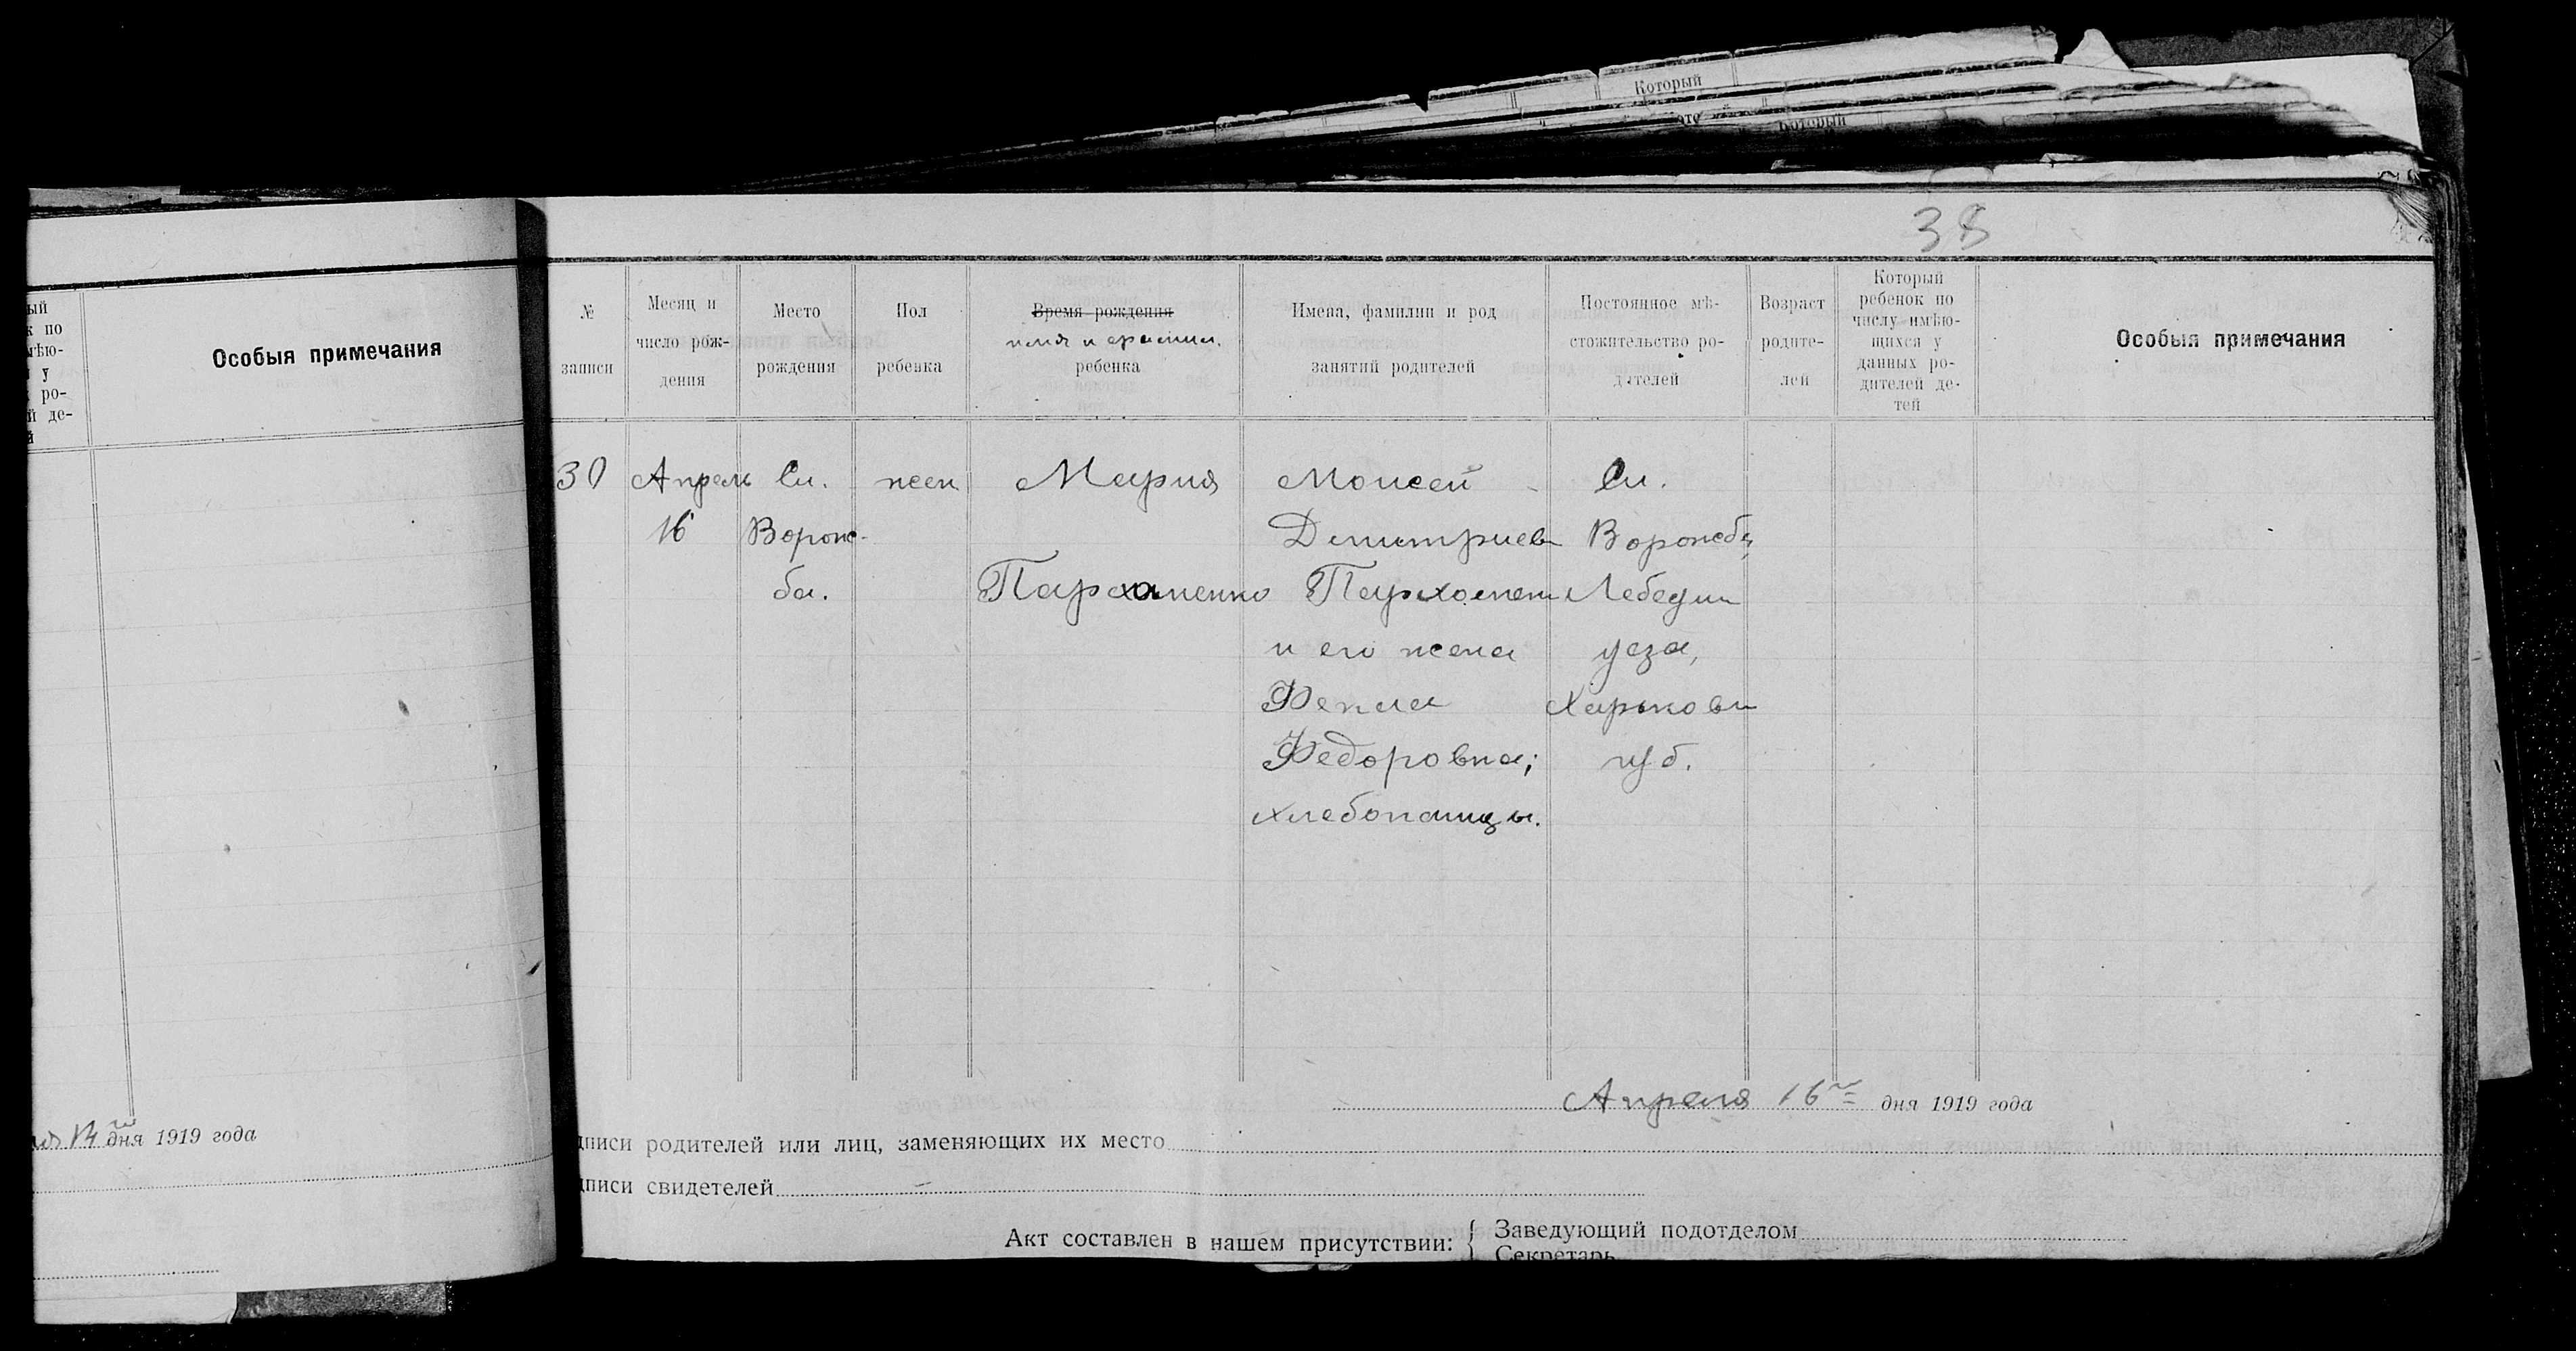 Который
Который
38
ый
к по
мѣю-
у
ро-
й де-
й
Особыя примечания
дня 1919 года
№
записи
Месяц и
число рож-
дения
Место
рождения
Пол
ребенка
Время рождения
имя и фамил.
ребенка
Имена, фамилии и род
занятий родителей
Постоянное мѣ-
стожительство ро-
дителей
Возраст
родите-
лей
Который
ребенок по
числу имѣю-
щихся у
данных ро-
дителей де-
тей
Особыя примечания
30
Апрель
16
Сл.
Вороже-
ба.
жен
Мария
Пархоменко
Моисей
Димитриев
Пархомен
и его жена
Фекла
Федоровна;
хлебопашцы.
Сл.
Ворожба,
Лебедин
уезда,
Харьков
губ.
Апреля 16го дня 1919 года
дписи родителей или лиц, заменяющих их место
дписи свидетелей
Акт составлен в нашем присутствии:
Заведующий подотделом
Секретарь